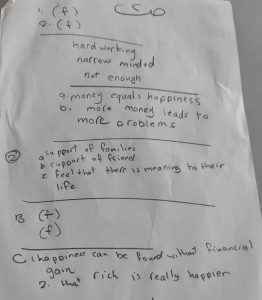 1. (f)
2. (f)
hard working
narrow minded
not enough
a. money equals happiness
b. more money leads to
more problems
2
a support of families
B. support of friend
c feel that there is meaning to their
life
B (f)
(f)
C 1 happiness can be found without financial
gain
2. that rich is really happier